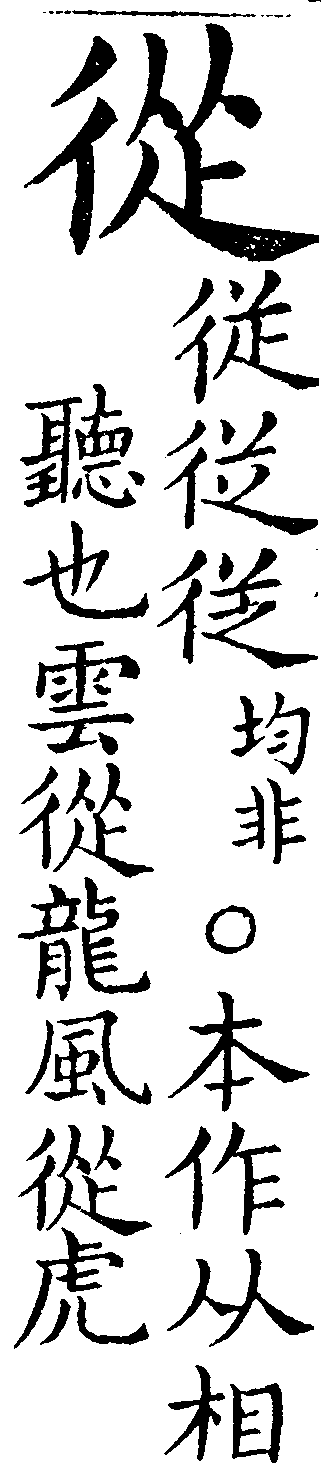 從
従均非○本作从相
聽也雲從龍風從虎